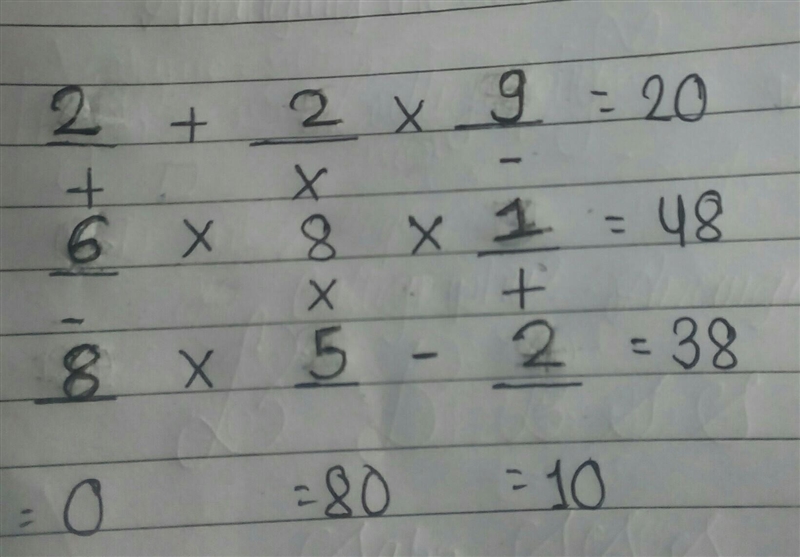 2 + 2 × 9 = 20
+ × -
6 × 8 × 1 = 48
- × +
8 × 5 - 2 = 38
= 0 = 80 = 10